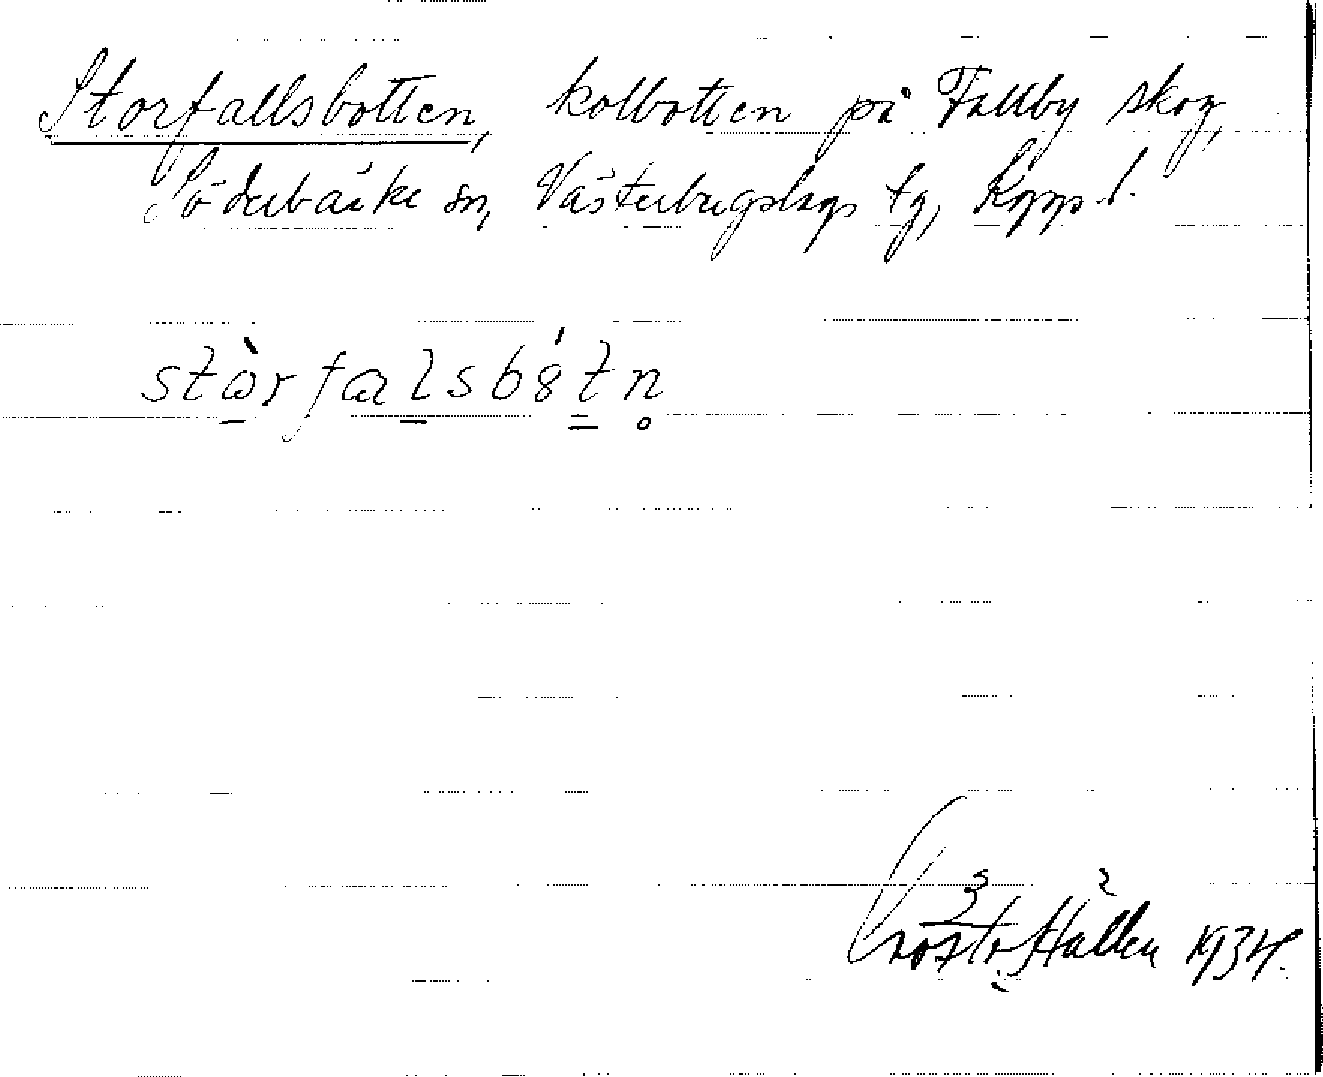 Storfallsbotten, kolbotten på Fallby skog,
Söderbärke sn, Västerbergslags tg, Kopp l.
stòrfalsbótn
Hallen 1934.